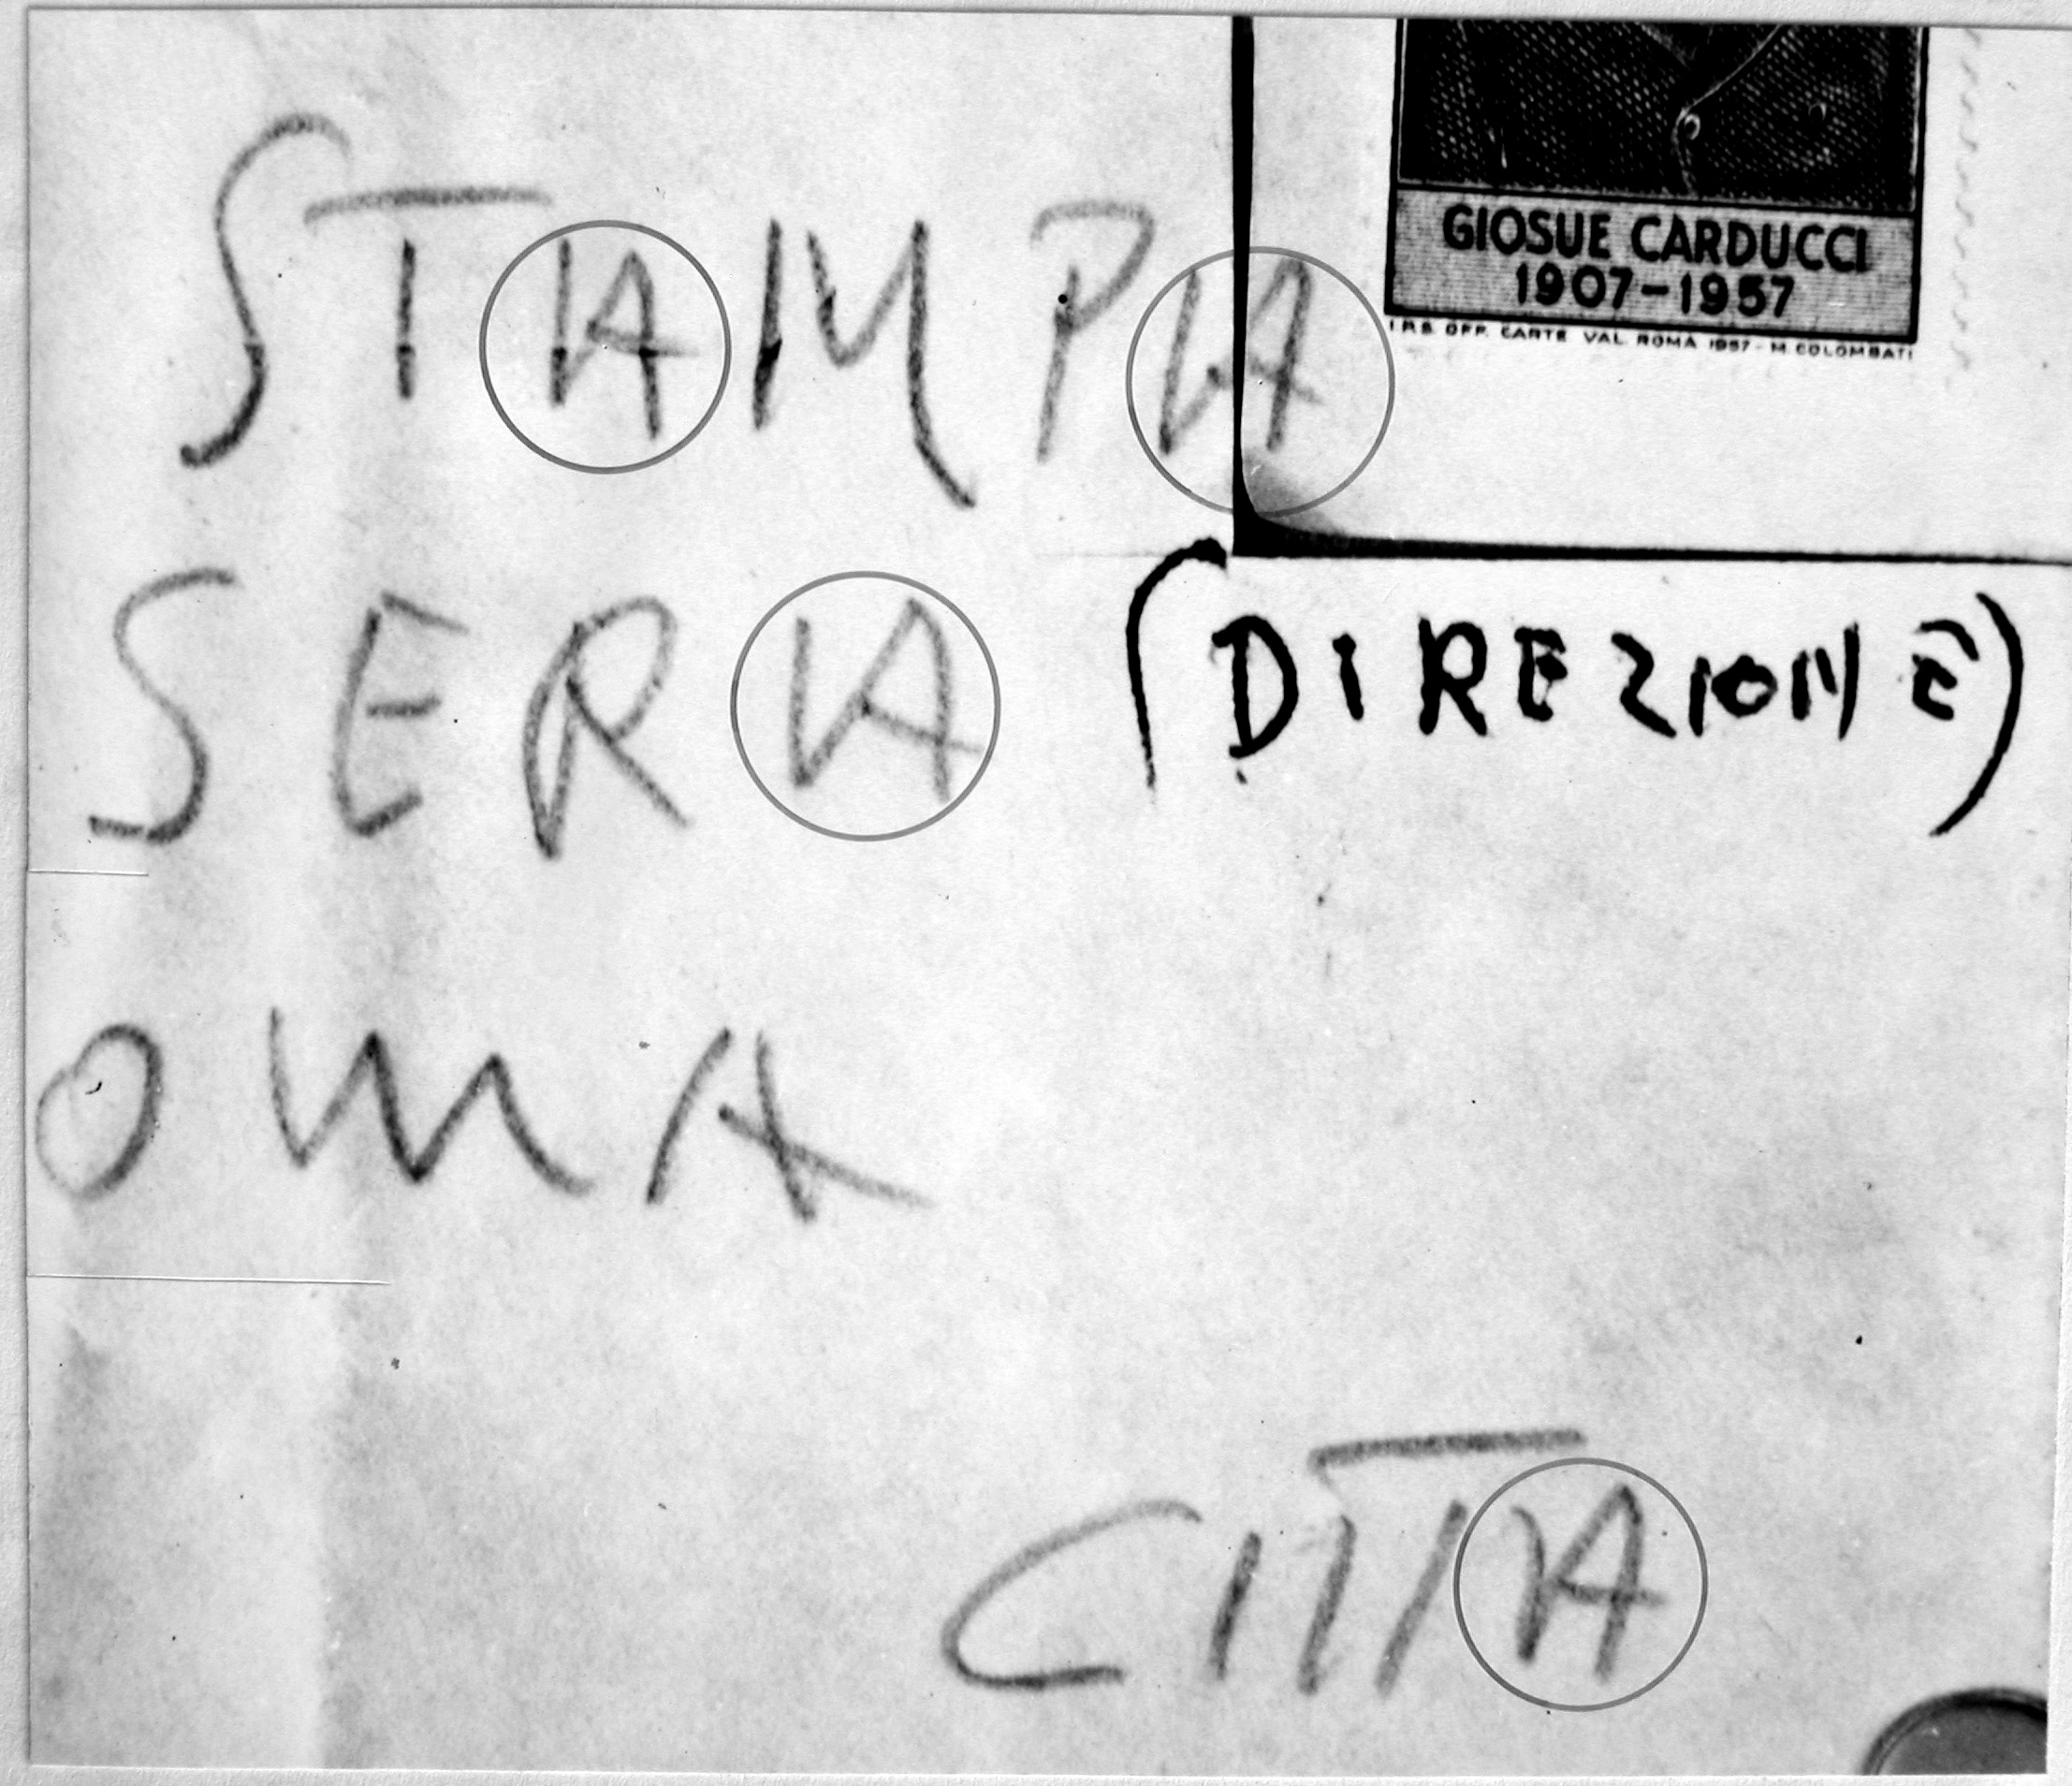 STAMPA
GIOSUE CARDUCCI
1907-1957
I.P.S. OFF. CARTE VAL. ROMA 1957 - M. COLOMBATI
SERA (DIREZIONE)
OMA
CITTA